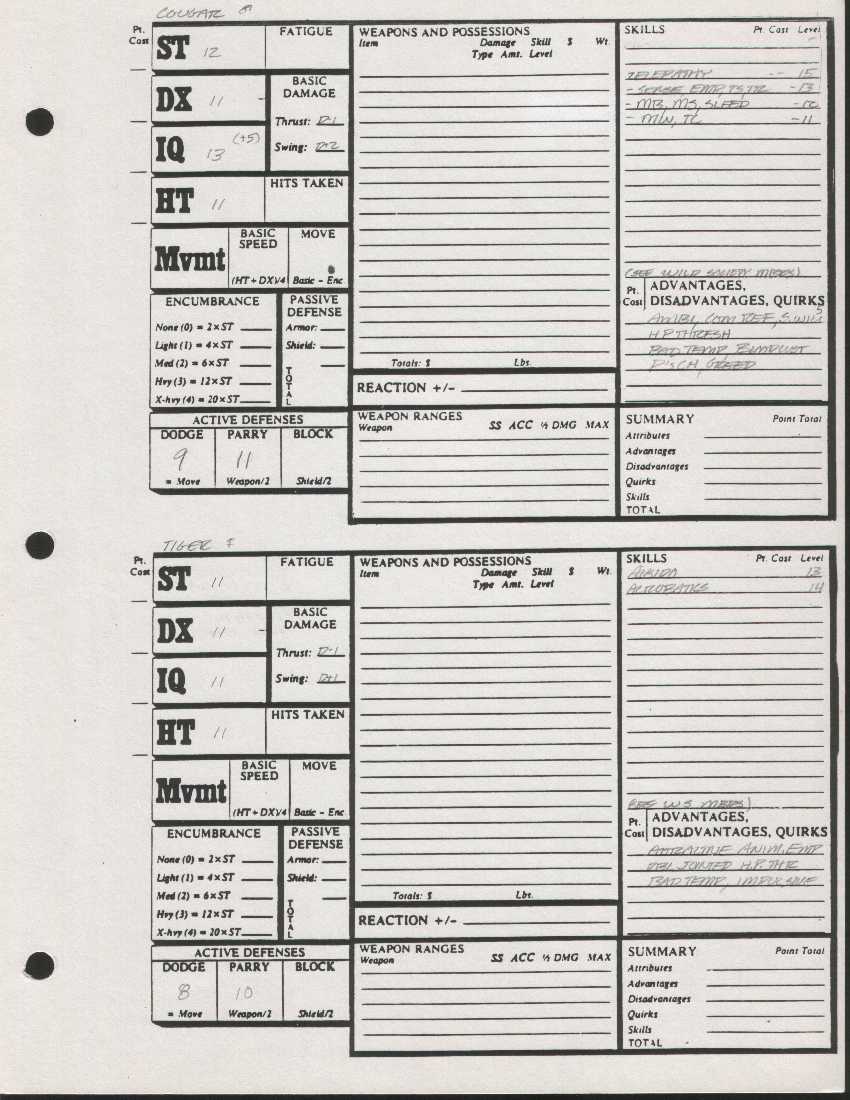 COUGAR ♂
Pt. Cost
ST 12
FATIGUE
DX 11 -
BASIC DAMAGE
Thrust: D-1
Swing: D+2
IQ 13 (+5)
HT 11
HITS TAKEN
Mvmt
BASIC SPEED
(HT + DX)/4
MOVE
Basic – Enc
ENCUMBRANCE
None (0) = 2×ST
Light (1) = 4×ST
Med (2) = 6×ST
Hvy (3) = 12×ST
X-hvy (4) = 20×ST
PASSIVE DEFENSE
Armor:
Shield:
TOTAL
ACTIVE DEFENSES
DODGE PARRY BLOCK
9 11
= Move Weapon/2 Shield/2
WEAPONS AND POSSESSIONS
Item Damage Skill $ Wt.
Type Amt. Level
Totals: $ Lbs.
REACTION +/-
WEAPON RANGES
Weapon SS ACC ½ DMG MAX
SKILLS Pt. Cost Level
TELEPATHY -- 15
- SENSE, EMP, TS, TR - 13
- MB, MS, SLEEP - 12
- M/W, TC - 11
(SEE WILD SOCIETY MEBS)
Pt. Cost
ADVANTAGES,
DISADVANTAGES, QUIRKS
AMBI, COM REF, 
H.P. THRESH
BAD TEMP, BLOODLUST
GREED
SUMMARY Point Total
Attributes
Advantages
Disadvantages
Quirks
Skills
TOTAL
TIGER
Pt. Cost
ST 11
FATIGUE
DX 11 -
BASIC DAMAGE
Thrust: D-1
Swing: D+1
IQ 11
HT 11
HITS TAKEN
Mvmt
BASIC SPEED
(HT + DX)/4
MOVE
Basic – Enc
ENCUMBRANCE
None (0) = 2×ST
Light (1) = 4×ST
Med (2) = 6×ST
Hvy (3) = 12×ST
X-hvy (4) = 20×ST
PASSIVE DEFENSE
Armor:
Shield:
TOTAL
ACTIVE DEFENSES
DODGE PARRY BLOCK
8 10
= Move Weapon/2 Shield/2
WEAPONS AND POSSESSIONS
Item Damage Skill $ Wt.
Type Amt. Level
Totals: $ Lbs.
REACTION +/-
WEAPON RANGES
Weapon SS ACC ½ DMG MAX
SKILLS Pt. Cost Level
13
ACROBATICS 14
(SEE W.S MEBS)
Pt. Cost
ADVANTAGES,
DISADVANTAGES, QUIRKS
ATTRACTIVE ANIM. EMP
DBL JOINTED H.P. THR
BAD TEMP, IMPULSIVE
SUMMARY Point Total
Attributes
Advantages
Disadvantages
Quirks
Skills
TOTAL